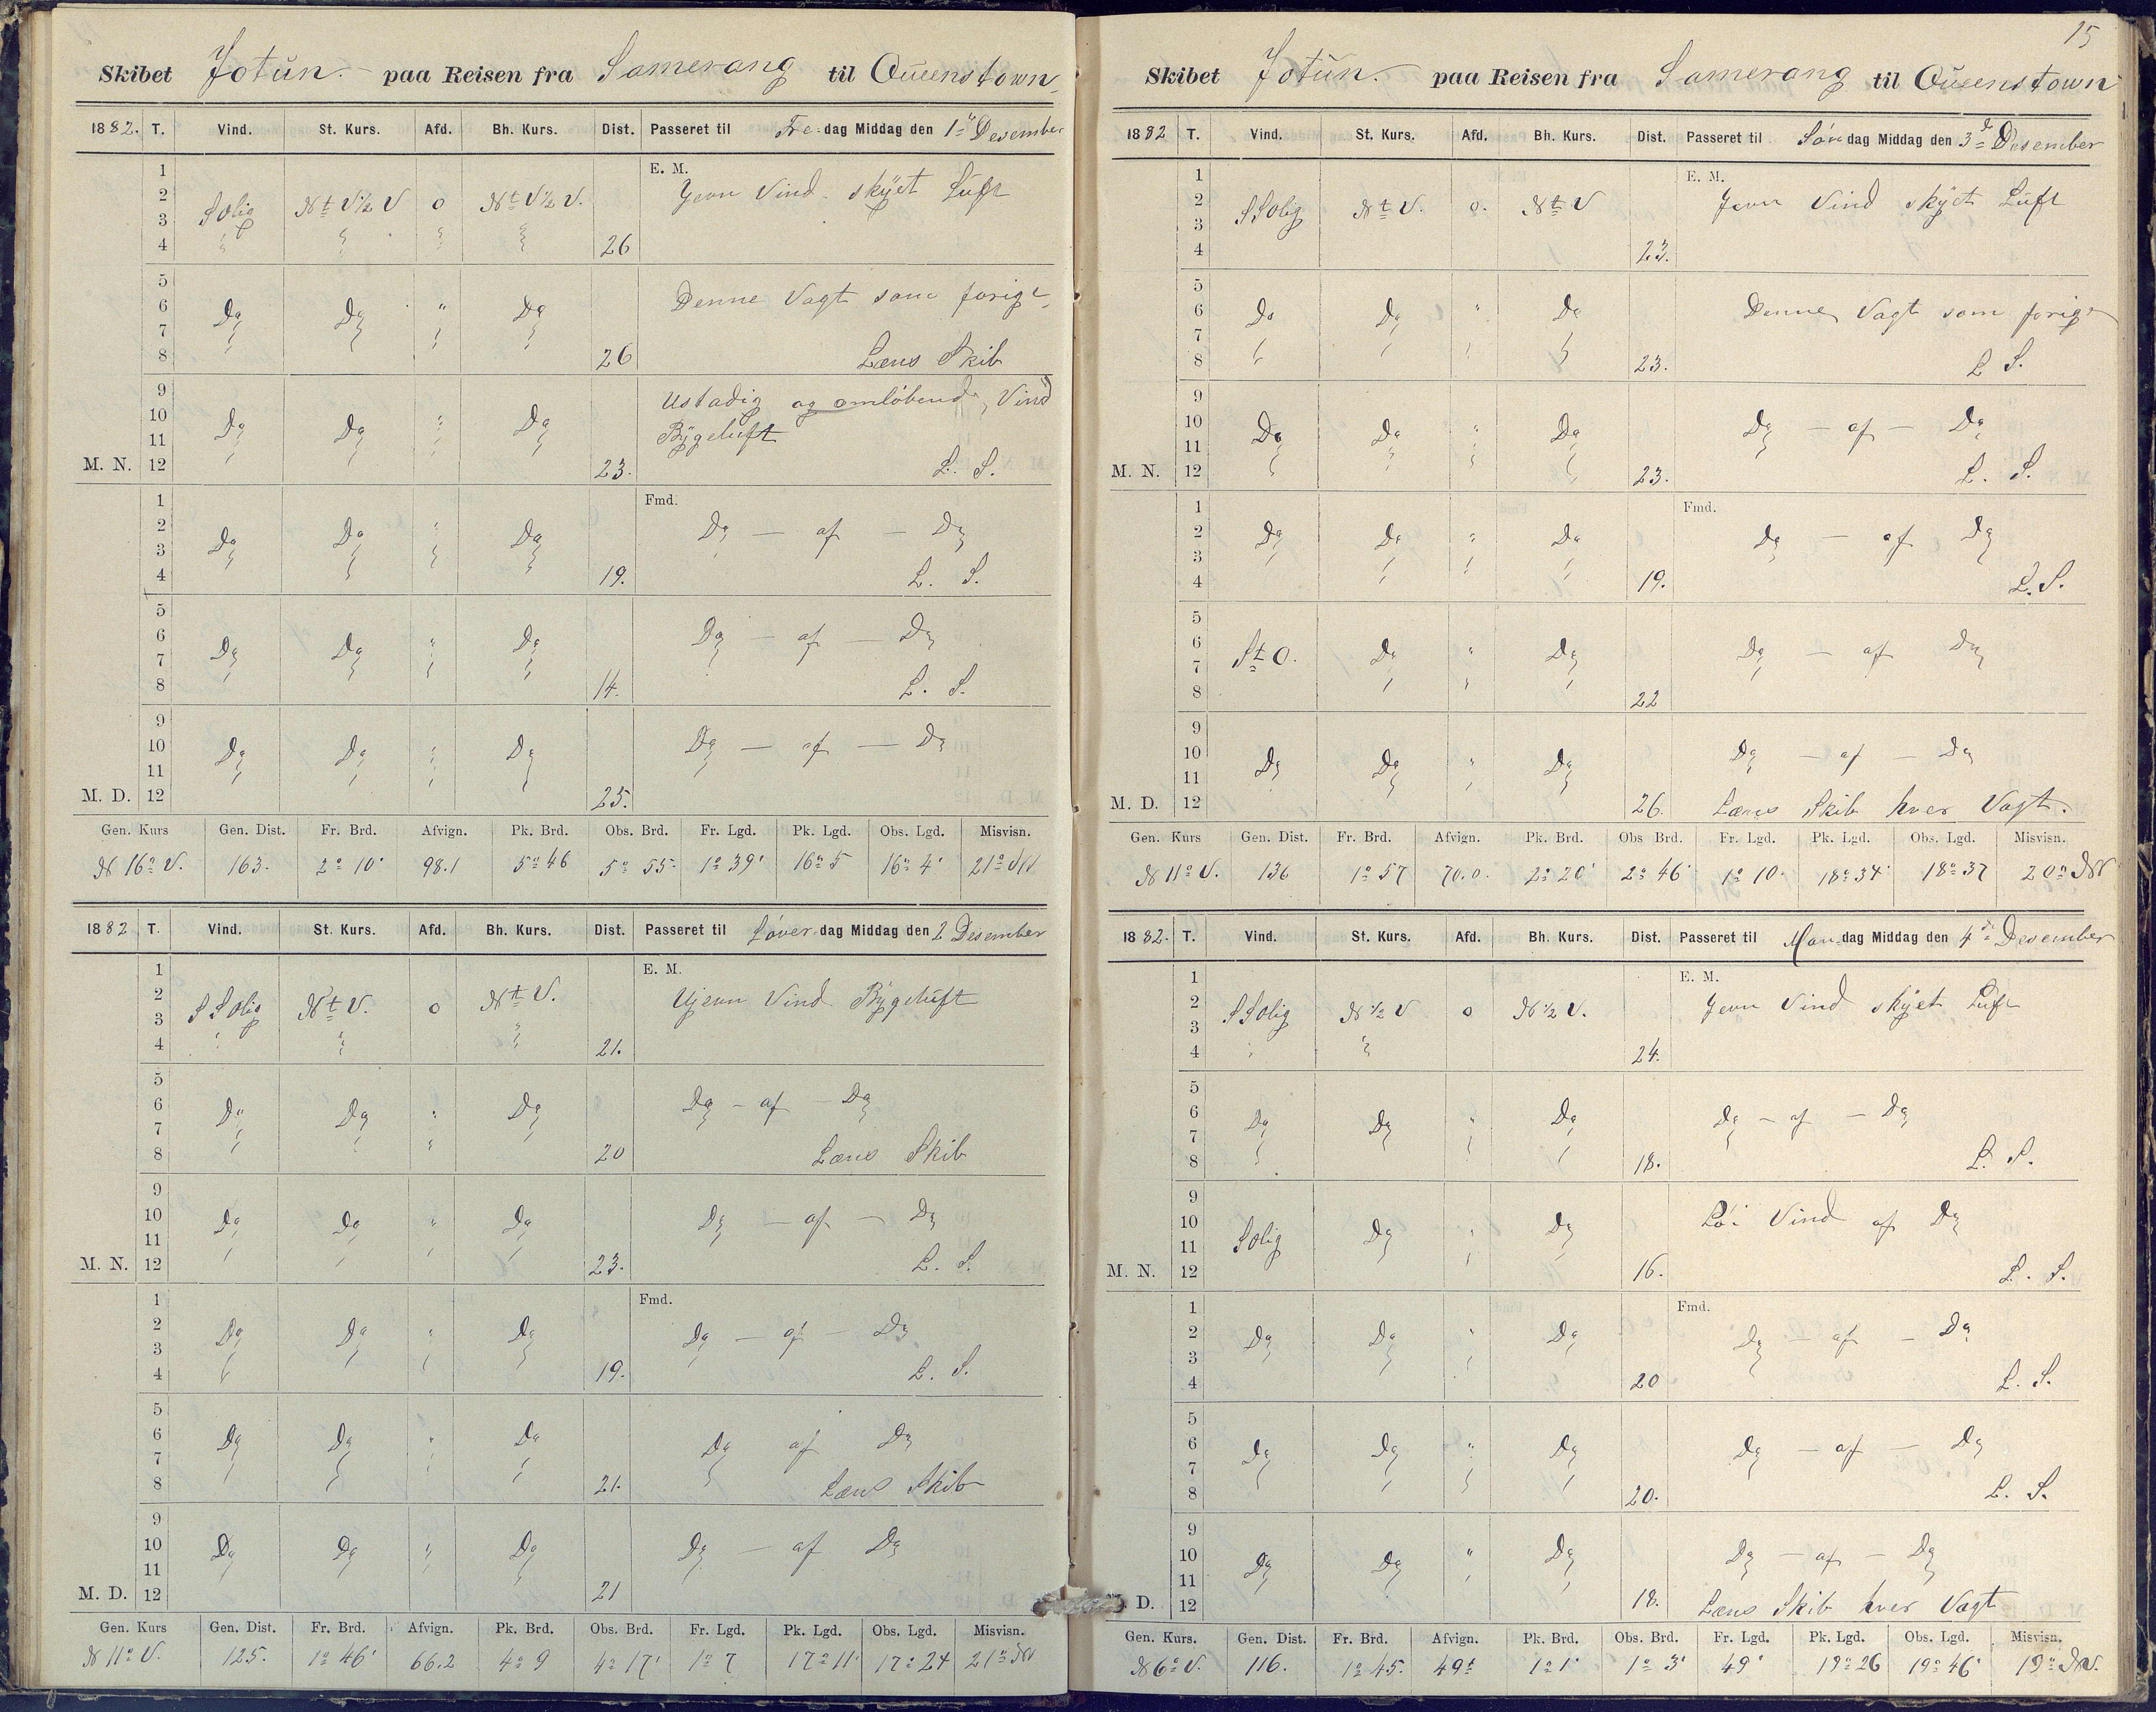 Skibet Jotun. paa Reisen fra Samerang til Queenstown
1882. T. Vind. St. Kurs. Afd. Bh. Kurs. Dist. Passeret til Fre-dag Middag den 1te Desember
1 E. M.
2 SOlig Nt V½ V 0 Nt V½ V. Jevn Vind skyet Luft
3
4 26
5
6 Do Do " Do Denne Vagt som forige
7
8 26 Læns Skib
9 Ustadig og omløbende Vind
10 Do Do Do Bygeluft
11
M. N. 12 23. L. S.
1 Fmd.
2 Do Do Do Do — af — Do
3
4 19. L. S.
5
6 Do Do " Do Do — af — Do
7
8 14. L. S.
9
10 Do Do Do Do — af — Do
11
M. D. 12 25.
Gen. Kurs Gen. Dist. Fr. Brd. Afvign. Pk. Brd. Obs. Brd. Fr. Lgd. Pk. Lgd. Obs. Lgd. Misvisn.
N 16° V. 163. 2° 10' 98.1 5° 46 5° 55 1° 39' 16° 5 16° 4' 21° NV
1882 T. Vind. St. Kurs. Afd. Bh. Kurs. Dist. Passeret til Løver-dag Middag den 2 Desember
1 E. M.
2 SSOlig Nt V. 0 Nt V. Ujevn Vind Bygeluft
3
4 21.
5
6 Do Do " Do Do — af — Do
7
8 20 Læns Skib
9
10 Do Do " Do Do — af — Do
11
M. N. 12 23. L. S.
1 Fmd.
2 Do Do " Do Do — af — Do
3
4 19. L. S.
5
6 Do Do " Do Do af Do
7
8 21. Læns Skib
9
10 Do Do " Do Do — af Do
11
M. D. 12 21
Gen. Kurs Gen. Dist. Fr. Brd. Afvign. Pk. Brd. Obs. Brd. Fr. Lgd. Pk. Lgd. Obs. Lgd. Misvisn.
N 11° V. 125. 1° 46' 66.2 4° 9 4° 17' 1° 7 17° 11' 17° 24 21° NV
15
Skibet Jotun. paa Reisen fra Samerang til Queenstown
1882 T. Vind. St. Kurs. Afd. Bh. Kurs. Dist. Passeret til Søn dag Middag den 3de Desember
1 E. M.
2 SSOlig Nt V. 0. Nt V Jevn Vind skyet Luft
3
4 23.
5
6 Do Do " Do Denne Vagt som forige
7
8 23. L S.
9
10 Do Do " Do Do — af — Do
11
M. N. 12 23. L. S.
1 Fmd.
2 Do Do " Do Do — af Do
3
4 19. L. S.
5
6 St O. Do " Do Do — af Do
7
8 22
9
10 Do Do " Do Do — af — Do
11
M. D. 12 26. Læns Skib hver Vagt.
Gen. Kurs Gen. Dist. Fr. Brd. Afvign. Pk. Brd. Obs Brd. Fr. Lgd. Pk. Lgd. Obs. Lgd. Misvisn.
N 11° V. 136 1° 57 70.0. 2° 20' 2° 46' 1° 10. 18° 34' 18° 37 20° NV
1882. T. Vind. St. Kurs. Afd. Bh. Kurs. Dist. Passeret til Man-dag Middag den 4de Desember
1 E. M.
2 SSOlig N½ V 0 N½ V. Jevn Vind skyet Luft
3
4 24.
5
6 Do Do " Do Do — af — Do
7
8 18. L. S.
9
10 SOlig Do " Do Løi Vind af Do
11
M. N. 12 16. L. S.
1 Fmd.
2 Do Do " Do Do — af — Do
3
4 20 L. S.
5
6 Do Do " Do Do — af — Do
7
8 20. L. S.
9
10 Do Do " Do Do — af — Do
11
D. 12 18. Læns Skib hver Vagt
Gen. Kurs. Gen. Dist. Fr. Brd. Afvign. Pk. Brd. Obs. Brd. Fr. Lgd. Pk. Lgd. Obs. Lgd. Misvisn.
N 6° V. 116. 1° 45. 1° 1' 1° 3' 49' 19° 26 19° 46' 19° NV.